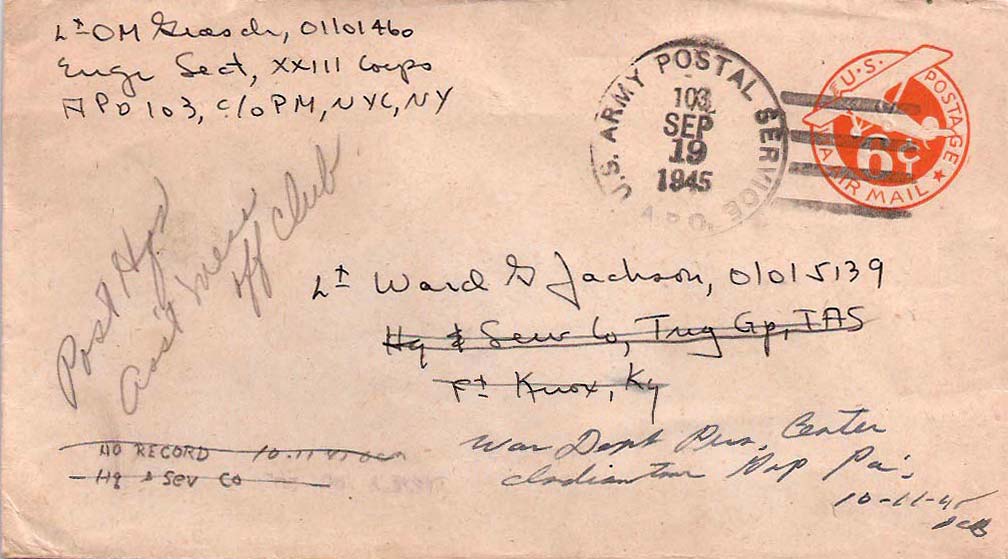 Lt OM Grosch, 01101460
Engr Sect, XXIII Corps
APO 103, c/o PM, NYC, NY
U.S. ARMY POSTAL SERVICE
A.P.O.
103
SEP
19
1945
U.S. POSTAGE
6¢
VIA AIR MAIL
Post Hqs
Ass't
Off Club
Lt Ward G Jackson, 01015139
Hq & Serv Co, Trng Gp, TAS
Ft Knox, Ky
War Dept Center
Indiantown Gap Pa.
10-11-45
NO RECORD 10-11-45
Hq & Sev Co